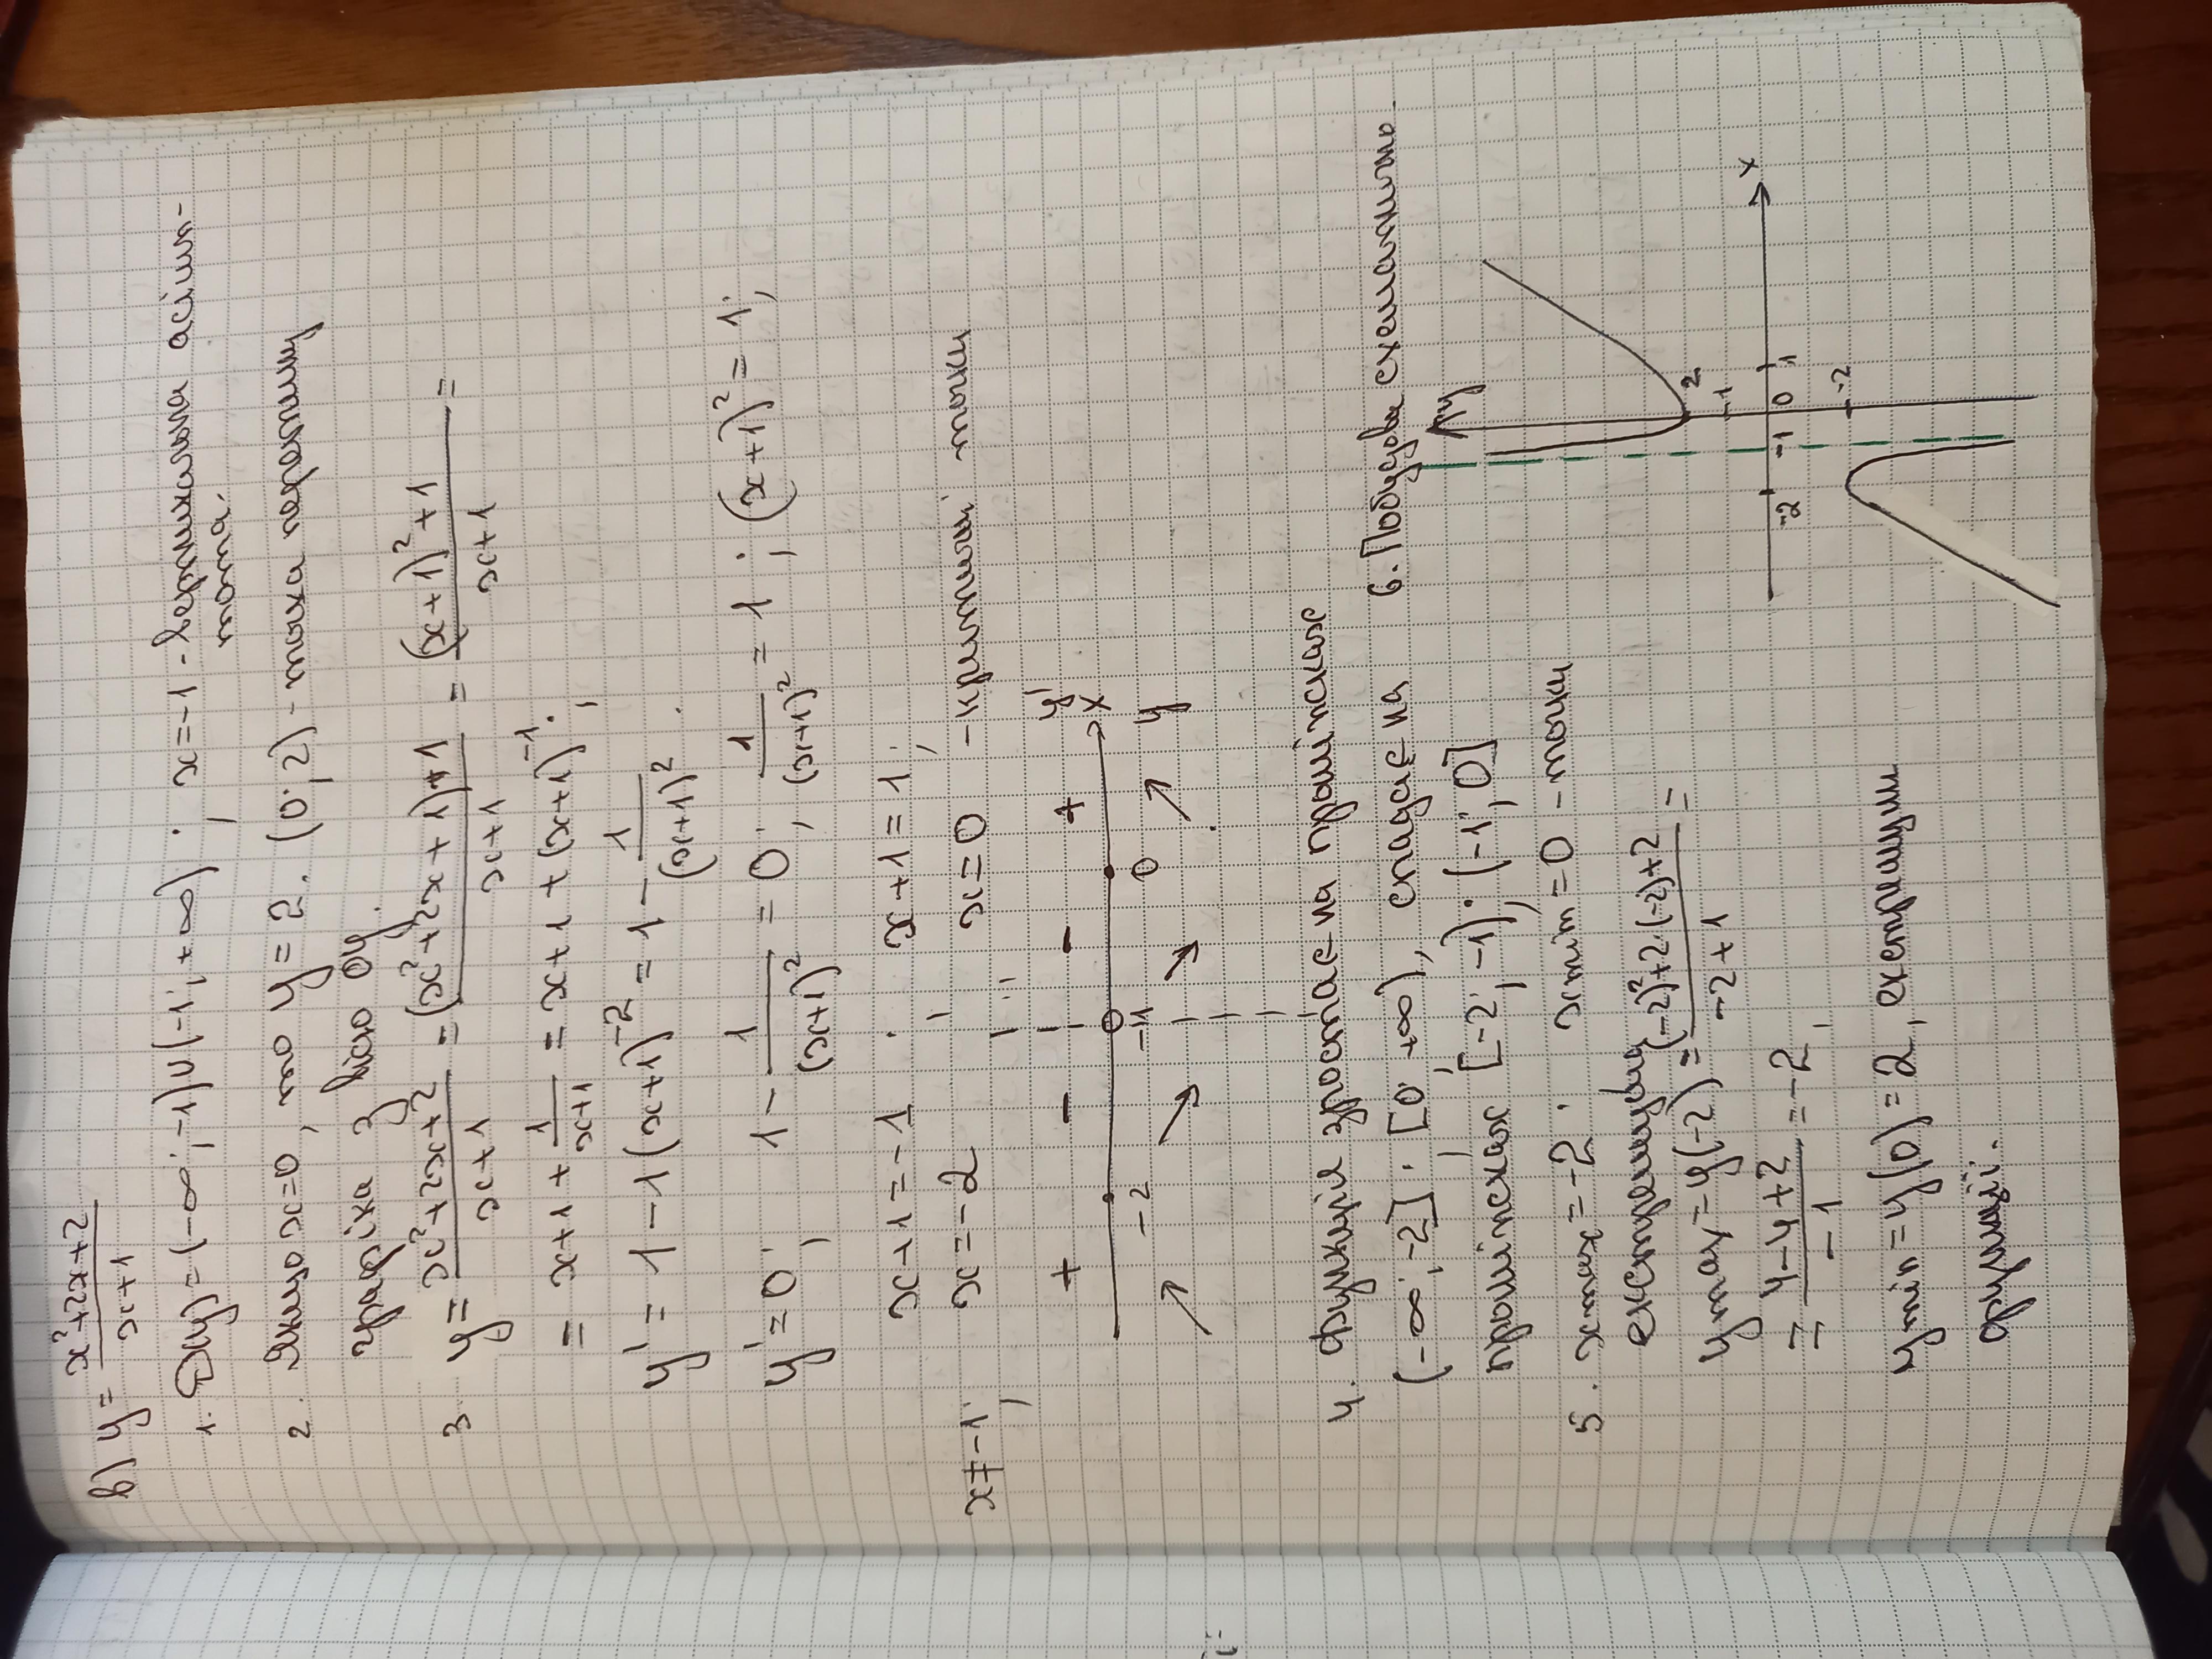 в) y = \frac{x²+2x+2}{x+1}
1. D(y)=(-∞;-1)∪(-1;+∞); x=-1 - вертикальна асимп-
тота.
2. Якщо x=0, то y=2. (0;2) - точка перетину
графіка з віссю OY.
3 y = \frac{x²+2x+2}{x+1} = \frac{(x²+2x+1)+1}{x+1} = \frac{(x+1)²+1}{x+1} =
= x+1 + \frac{1}{x+1} = x+1+(x+1)⁻¹;
y' = 1-1(x+1)⁻² = 1 - \frac{1}{(x+1)²}.
y'=0; 1 - \frac{1}{(x+1)²} = 0; \frac{1}{(x+1)²} = 1; (x+1)² = 1;
x+1=-1; x+1=1;
x≠-1; x=-2; x=0 - критичні точки
+ - - + y'
-2 -1 0 x
↗ ↘ ↘ ↗ y
4. Функція зростає на проміжках
(-∞;-2]; [0;+∞), спадає на
проміжках [-2;-1); (-1;0]
5. xmax=-2; xmin=0 - точки
екстремуму
ymax=y(-2)=\frac{(-2)²+2·(-2)+2}{-2+1} =
= \frac{4-4+2}{-1} = -2;
ymin=y(0)=2, екстремуми
функції.
6. Побудова схематично.
y
2
1
-2 -1 0 1 x
-2